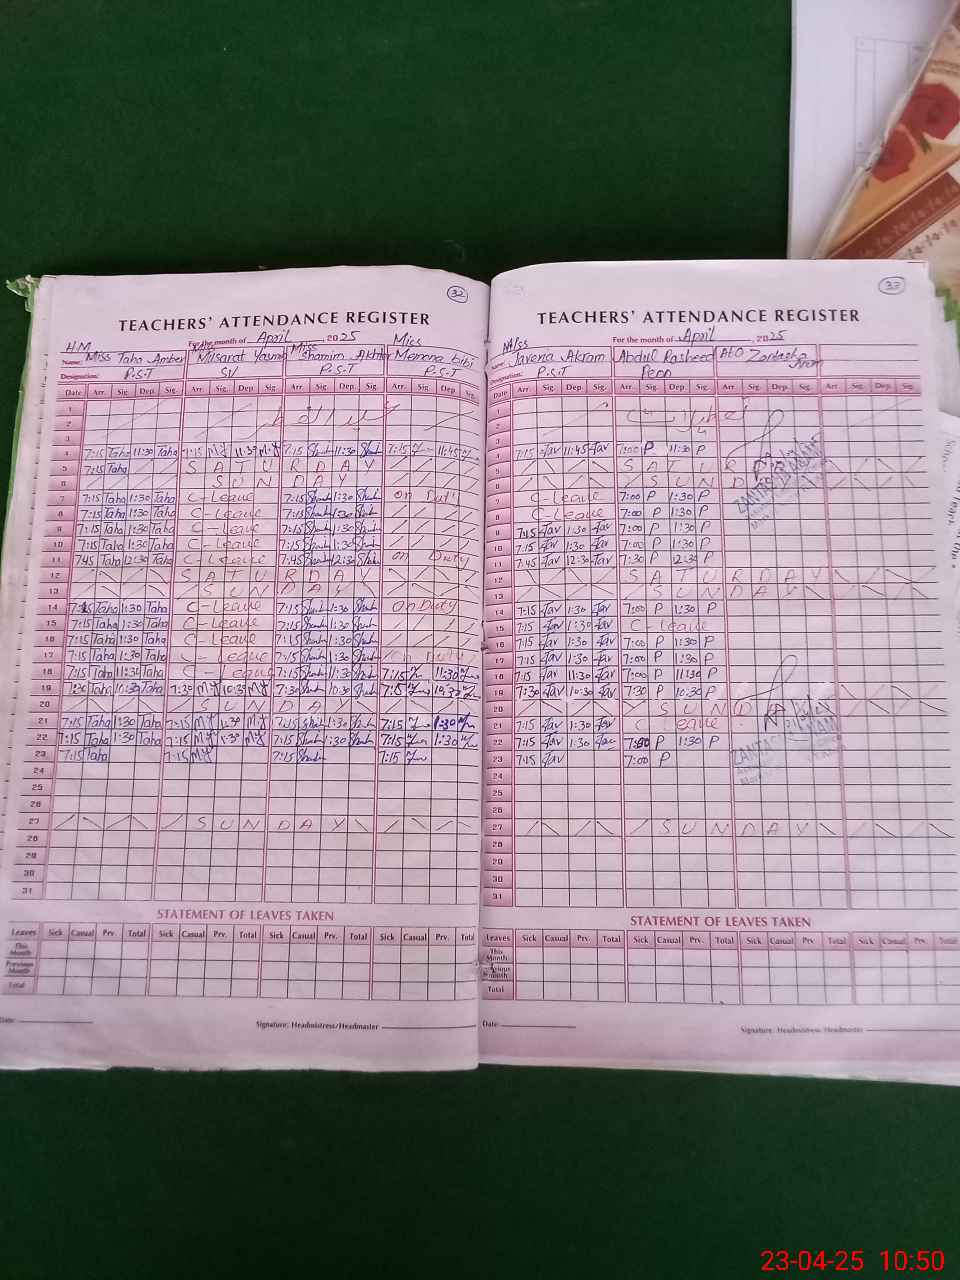 32
TEACHERS' ATTENDANCE REGISTER
For the month of April, 2025
H.M Miss Miss Miss
Name: Miss Taha Amber Musarat Yasmin Shamim Akhtar Memona bibi
Designation: P.S.T SV P.S.T P.S.T
Date Arr. Sig. Dep. Sig. Arr. Sig. Dep. Sig. Arr. Sig. Dep. Sig. Arr. Sig. Dep. Sig.
1
2
3
4 7:15 Taha 11:30 Taha 7:15 11:30 7:15 Sham 11:30 Sham 7:15 11:45
5 7:15 Taha SATURDAY
6 SUNDAY
7 7:15 Taha 1:30 Taha C-Leave 7:15 Sham 1:30 Sham on Duty
8 7:15 Taha 1:30 Taha C-Leave 7:15 Sham 1:30 Sham
9 7:15 Taha 1:30 Taha C-Leave 7:15 Sham 1:30 Sham
10 7:15 Taha 1:30 Taha C-Leave 7:15 Sham 1:30 Sham
11 7:45 Taha 12:30 Taha C-Leave 7:45 Sham 12:30 Sham on Duty
12 SATURDAY
13 SUNDAY
14 7:15 Taha 1:30 Taha C-Leave 7:15 Sham 1:30 Sham on Duty
15 7:15 Taha 1:30 Taha C-Leave 7:15 Sham 1:30 Sham
16 7:15 Taha 1:30 Taha C-Leave 7:15 Sham 1:30 Sham
17 7:15 Taha 1:30 Taha C-Leave 7:15 Sham 1:30 Sham on Duty
18 7:15 Taha 11:30 Taha C-Leave 7:15 Sham 11:30 Sham 7:15 11:30
19 7:30 Taha 10:30 Taha 7:30 10:30 7:30 Sham 10:30 Sham 7:15 10:30
20 SUNDAY
21 7:15 Taha 1:30 Taha 7:15 1:30 7:15 Sham 1:30 Sham 7:15 1:30
22 7:15 Taha 1:30 Taha 7:15 1:30 7:15 Sham 1:30 Sham 7:15 1:30
23 7:15 Taha 7:15 7:15 Sham 7:15
24
25
26
27 SUNDAY
28
29
30
31
STATEMENT OF LEAVES TAKEN
Leaves Sick Casual Prv. Total Sick Casual Prv. Total Sick Casual Prv. Total Sick Casual Prv. Total
This Month
Previous Month
Total
Date:
Signature: Headmistress/Headmaster
33
TEACHERS' ATTENDANCE REGISTER
For the month of April, 2025
Miss
Name: Javeria Akram Abdul Rasheed AEO Zantash
Designation: P.S.T Peon
Date Arr. Sig. Dep. Sig. Arr. Sig. Dep. Sig. Arr. Sig. Dep. Sig. Arr. Sig. Dep. Sig.
1
2
3
4 7:15 Jav 11:45 Jav 7:00 P 11:30 P
5 SATUR
6 SUND
7 C-Leave 7:00 P 1:30 P
8 C-Leave 7:00 P 1:30 P
9 7:15 Jav 1:30 Jav 7:00 P 1:30 P
10 7:15 Jav 1:30 Jav 7:00 P 1:30 P
11 7:45 Jav 12:30 Jav 7:30 P 12:30 P
12 SATURDAY
13 SUNDAY
14 7:15 Jav 1:30 Jav 7:00 P 1:30 P
15 7:15 Jav 1:30 Jav C-Leave
16 7:15 Jav 1:30 Jav 7:00 P 1:30 P
17 7:15 Jav 1:30 Jav 7:00 P 1:30 P
18 7:15 Jav 11:30 Jav 7:00 P 11:30 P
19 7:30 Jav 10:30 Jav 7:30 P 10:30 P
20 SUND
21 7:15 Jav 1:30 Jav C-Leave
22 7:15 Jav 1:30 Jav 7:00 P 1:30 P
23 7:15 Jav 7:00 P
24
25
26
27 SUNDAY
28
29
30
31
STATEMENT OF LEAVES TAKEN
Leaves Sick Casual Prv. Total Sick Casual Prv. Total Sick Casual Prv Total Sick Casual Prv. Total
This Month
Previous Month
Total
Date:
Signature: Headmistress/Headmaster
23-04-25 10:50